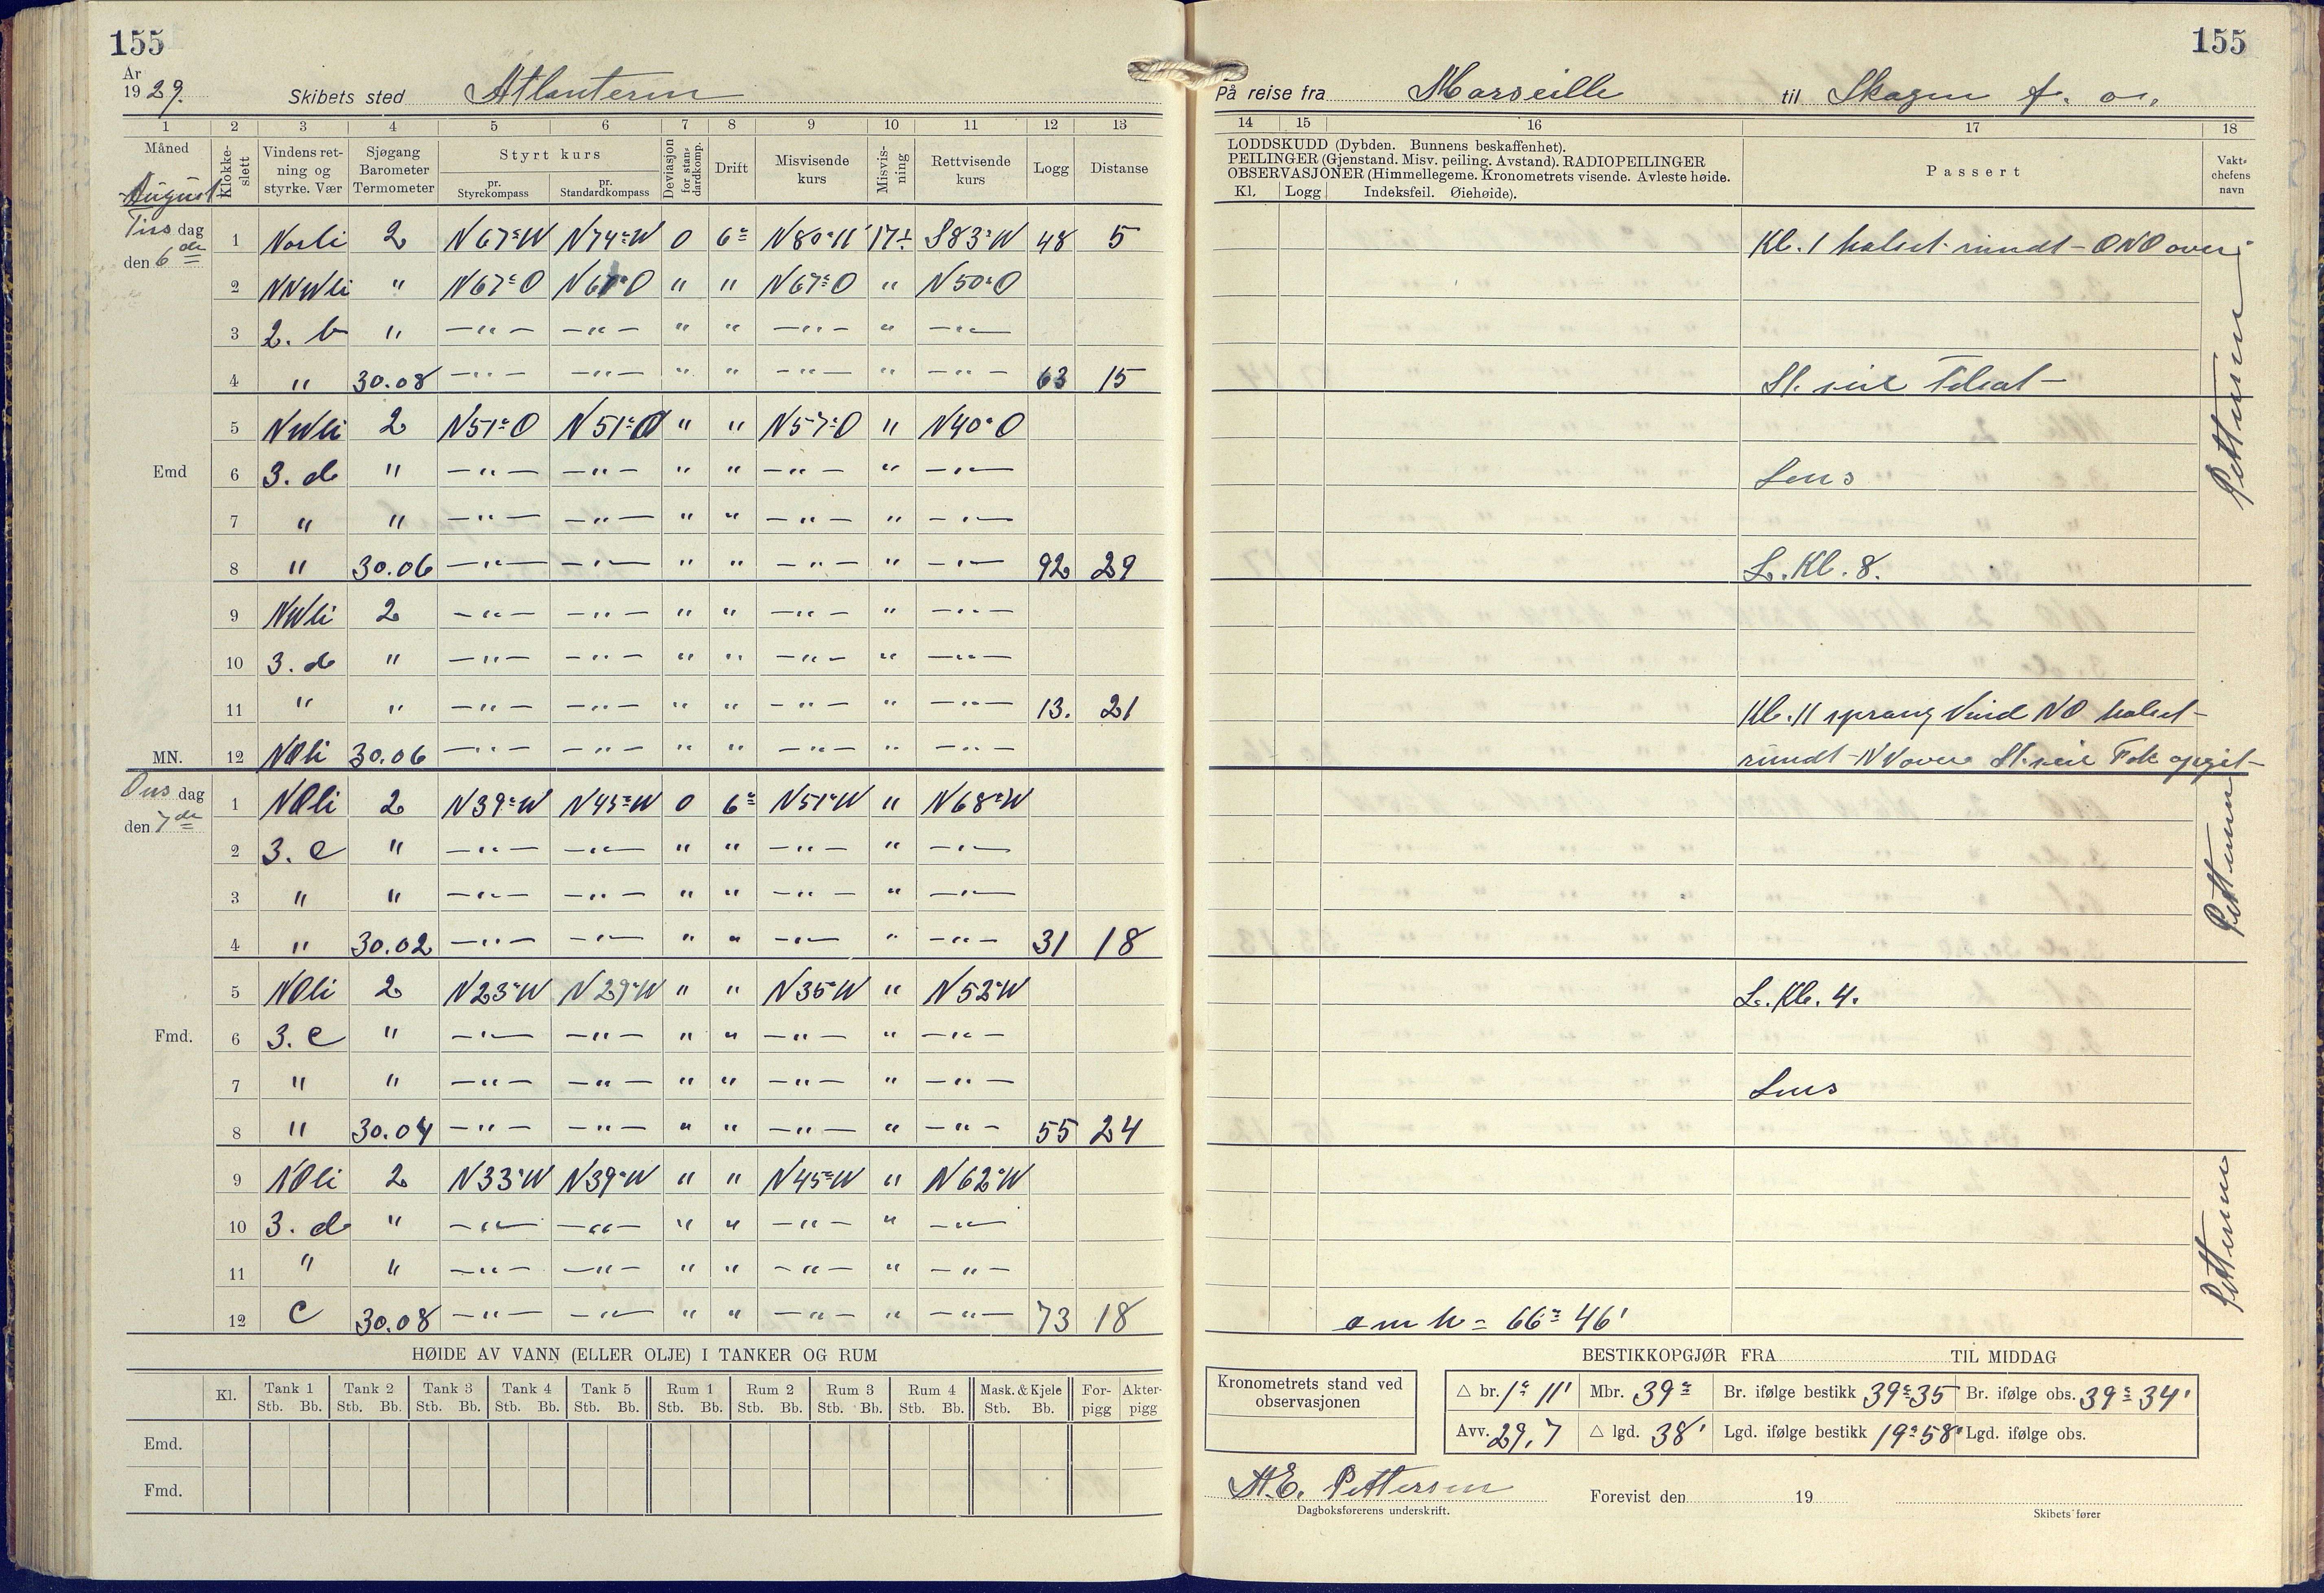 155
155
År
1929.
Skibets sted Atlanteren
På reise fra Marseille til Skagen f. o.
1 2 3 4 5 6 7 8 9 10 11 12 13
14 15 16 17 18
Måned
August
Klokke-slett
Vindens ret-ning og styrke. Vær
Sjøgang Barometer Termometer
Styrt kurs
pr. Styrekompass
pr. Standardkompass
Deviasjon for stan-dardkomp.
Drift
Misvisende kurs
Misvis-ning
Rettvisende kurs
Logg
Distanse
LODDSKUDD (Dybden. Bunnens beskaffenhet).
PEILINGER (Gjenstand. Misv. peiling. Avstand). RADIOPEILINGER
OBSERVASJONER (Himmellegeme. Kronometrets visende. Avleste høide.
Kl. Logg Indeksfeil. Øiehøide).
Passert
Vakt-chefens navn
Tirsdag
den 6de
1 Norli 2 N67°W N74°W 0 6° N80°W 17÷ S83°W 48 5 Kl. 1 halset rundt - ONO over
2 NNWli " N67°O N67°O " " N67°O " N50°O
3 2. b " —"— —"— " " —"— " —"—
4 " 30.08 —"— —"— " " —"— " —"— 63 15 St. seil
5 NWli 2 N51°O N51°O " " N57°O " N40°O
Emd 6 3. d " —"— —"— " " —"— " —"— Lens
7 " " —"— —"— " " —"— " —"—
8 " 30.06 —"— —"— " " —"— " —"— 92 29 L. Kl. 8.
Pettersen
9 NWli 2 —"— —"— " " —"— " —"—
10 3. d " —"— —"— " " —"— " —"—
11 " " —"— —"— " " —"— " —"— 13. 21 Kl. 11 sprang Vind NO halset
MN. 12 NOli 30.06 —"— —"— " " —"— " —"— rundt - NV over St. seil Fok opgit
Onsdag
den 7de
1 NOli 2 N39°W N45°W 0 6° N51°W " N68°W
2 3. c " —"— —"— " " —"— " —"—
3 " " —"— —"— " " —"— " —"—
4 " 30.02 —"— —"— " " —"— " —"— 31 18
Pettersen
5 NOli 2 N23°W N29°W " " N35°W " N52°W L. Kl. 4.
Fmd. 6 3. c " —"— —"— " " —"— " —"—
7 " " —"— —"— " " —"— " —"— Lens
8 " 30.04 —"— —"— " " —"— " —"— 55 24
9 NOli 2 N33°W N39°W " " N45°W " N62°W
10 3. d " —"— —"— " " —"— " —"—
11 " " —"— —"— " " —"— " —"—
12 c 30.08 —"— —"— " " —"— " —"— 73 18 o m h = 66° 46'
Pettersen
HØIDE AV VANN (ELLER OLJE) I TANKER OG RUM
Kl. Tank 1 Tank 2 Tank 3 Tank 4 Tank 5 Rum 1 Rum 2 Rum 3 Rum 4 Mask. & Kjele For-pigg Akter-pigg
Stb. Bb. Stb. Bb. Stb. Bb. Stb. Bb. Stb. Bb. Stb. Bb. Stb. Bb. Stb. Bb. Stb. Bb. Stb. Bb.
Emd.
Fmd.
BESTIKKOPGJØR FRA TIL MIDDAG
Kronometrets stand ved observasjonen
△ br. 1° 11' Mbr. 39° Br. ifølge bestikk 39° 35 Br. ifølge obs. 39° 34'
Avv. 29,7 △ lgd. 38' Lgd. ifølge bestikk 19° 58' Lgd. ifølge obs.
A.E. Pettersen
Dagboksførerens underskrift.
Forevist den 19
Skibets fører